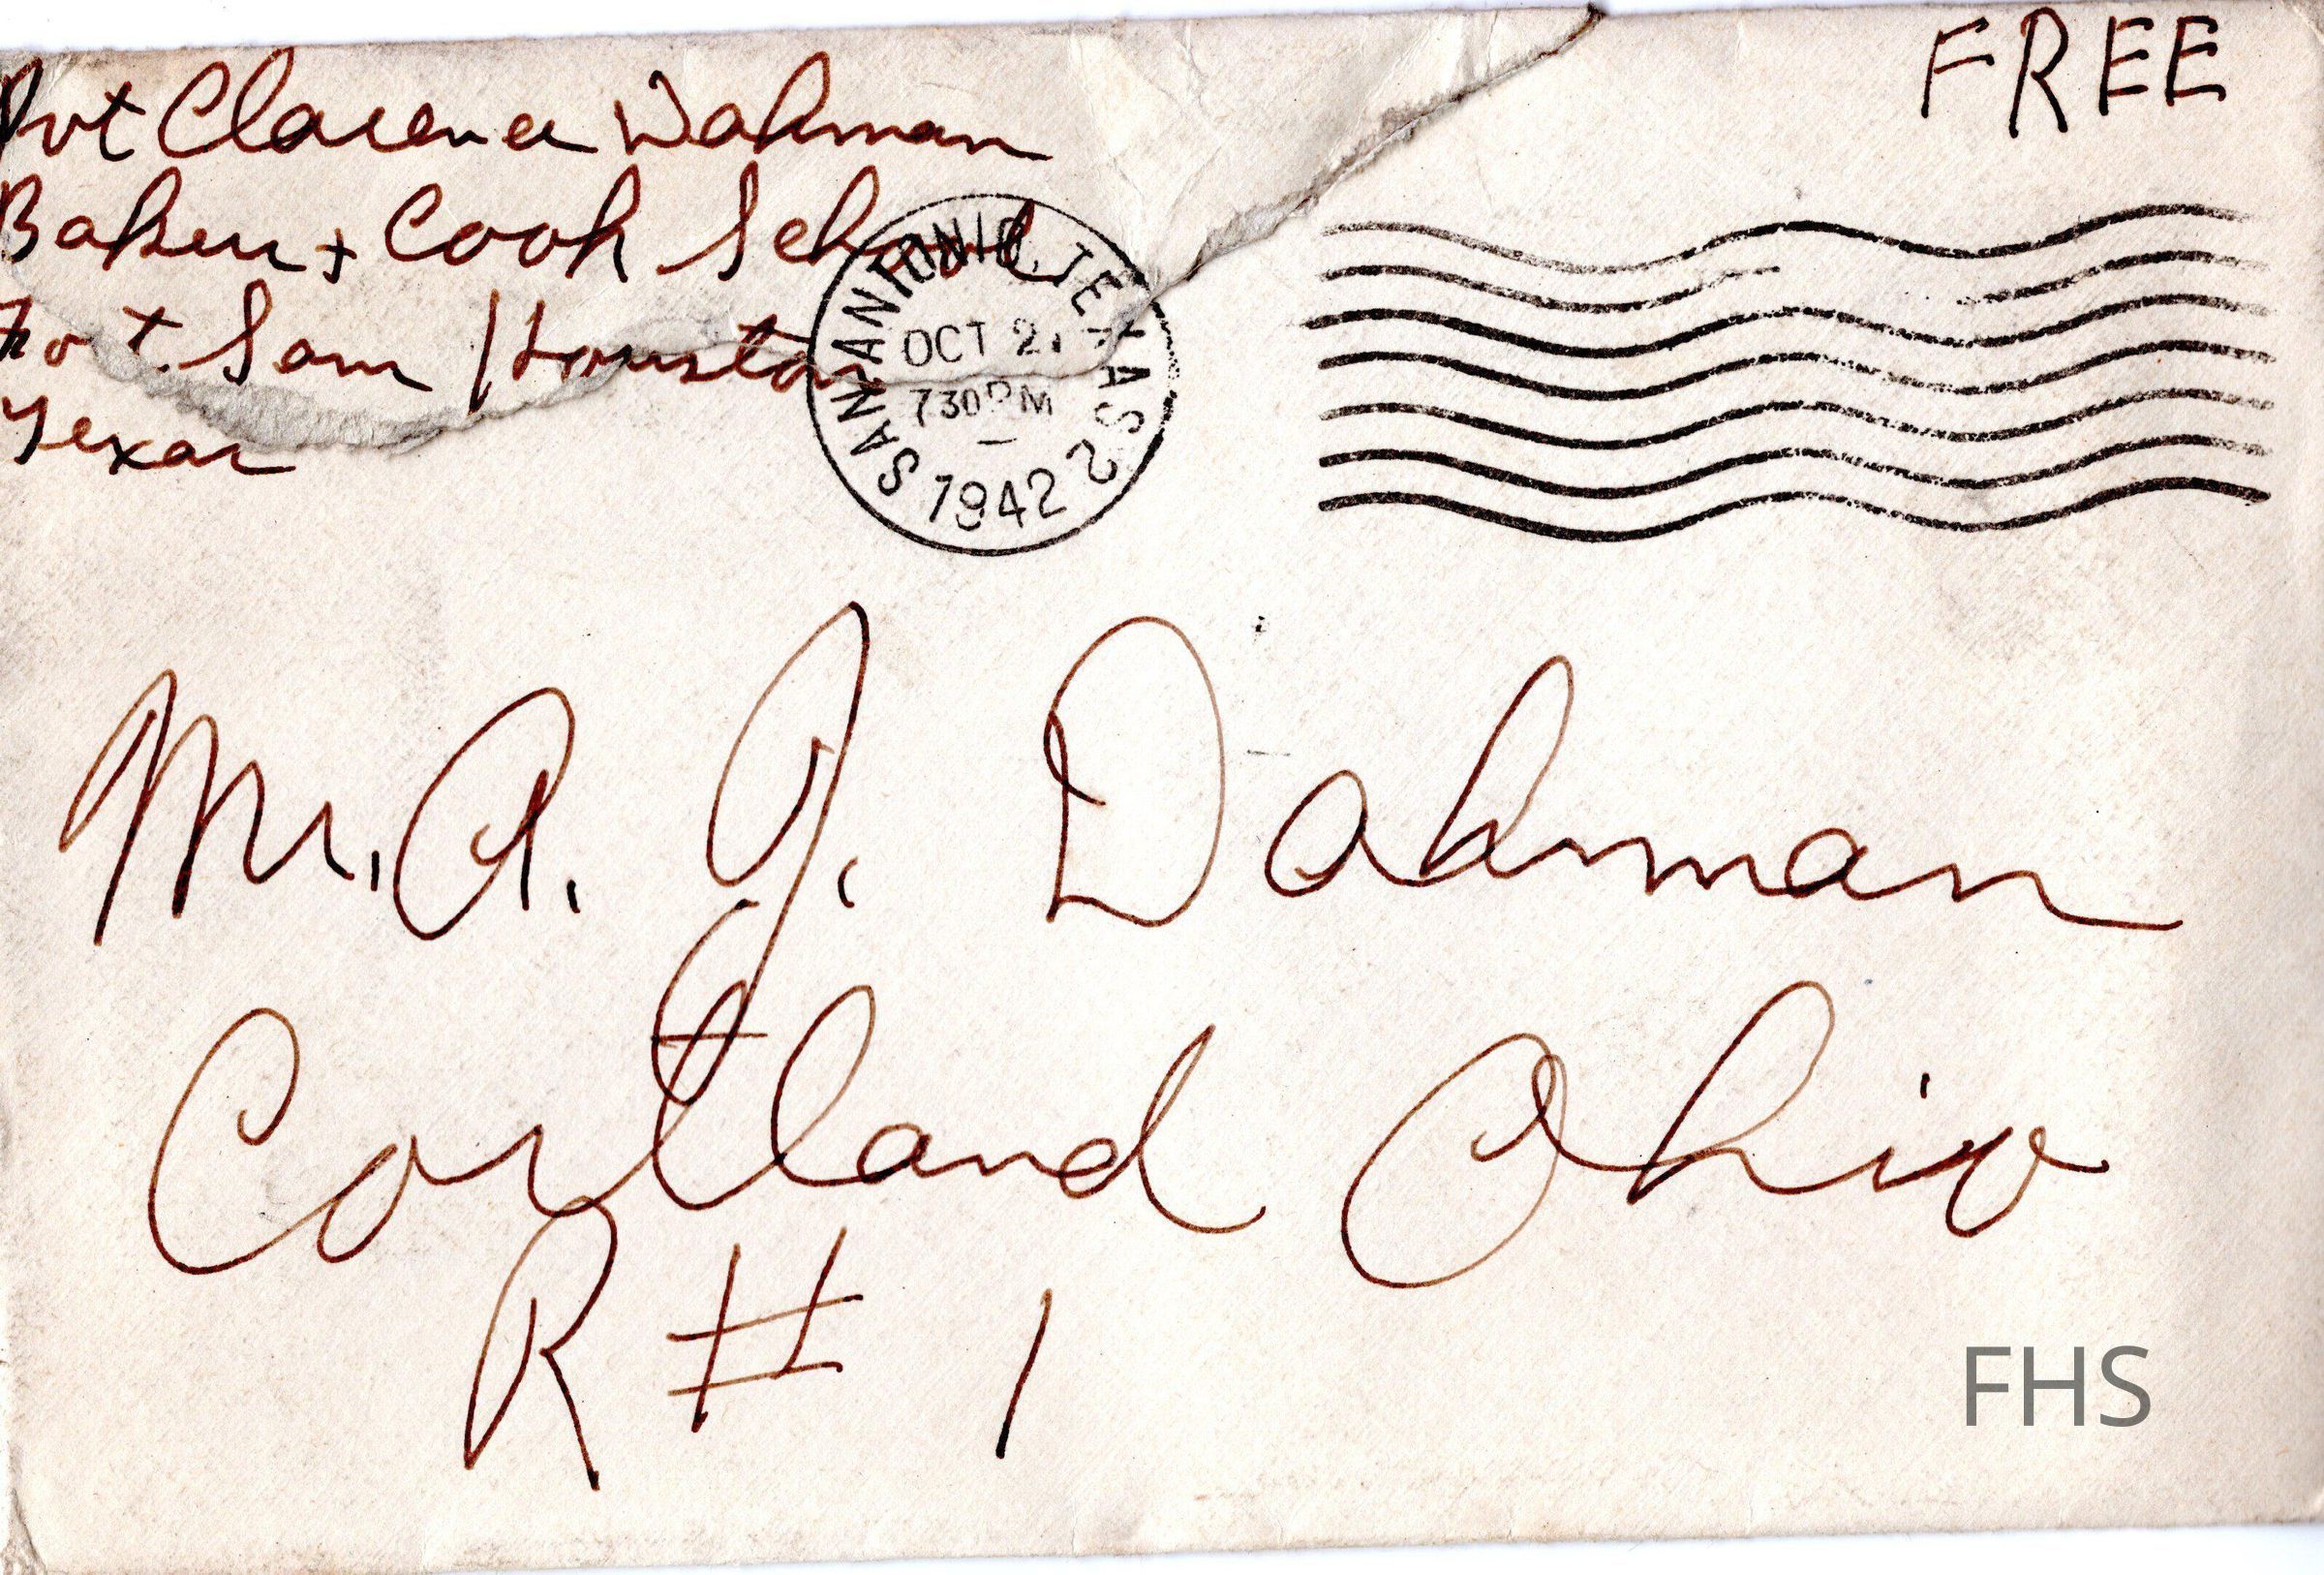 Pvt Clarence Dahman
FREE
Baker + Cook School
Fort Sam Houston
Texas
SAN ANTONIO, TEXAS 2
OCT
730 PM
1942
Mr. A. J. Dahman
Cortland Ohio
R # 1
FHS